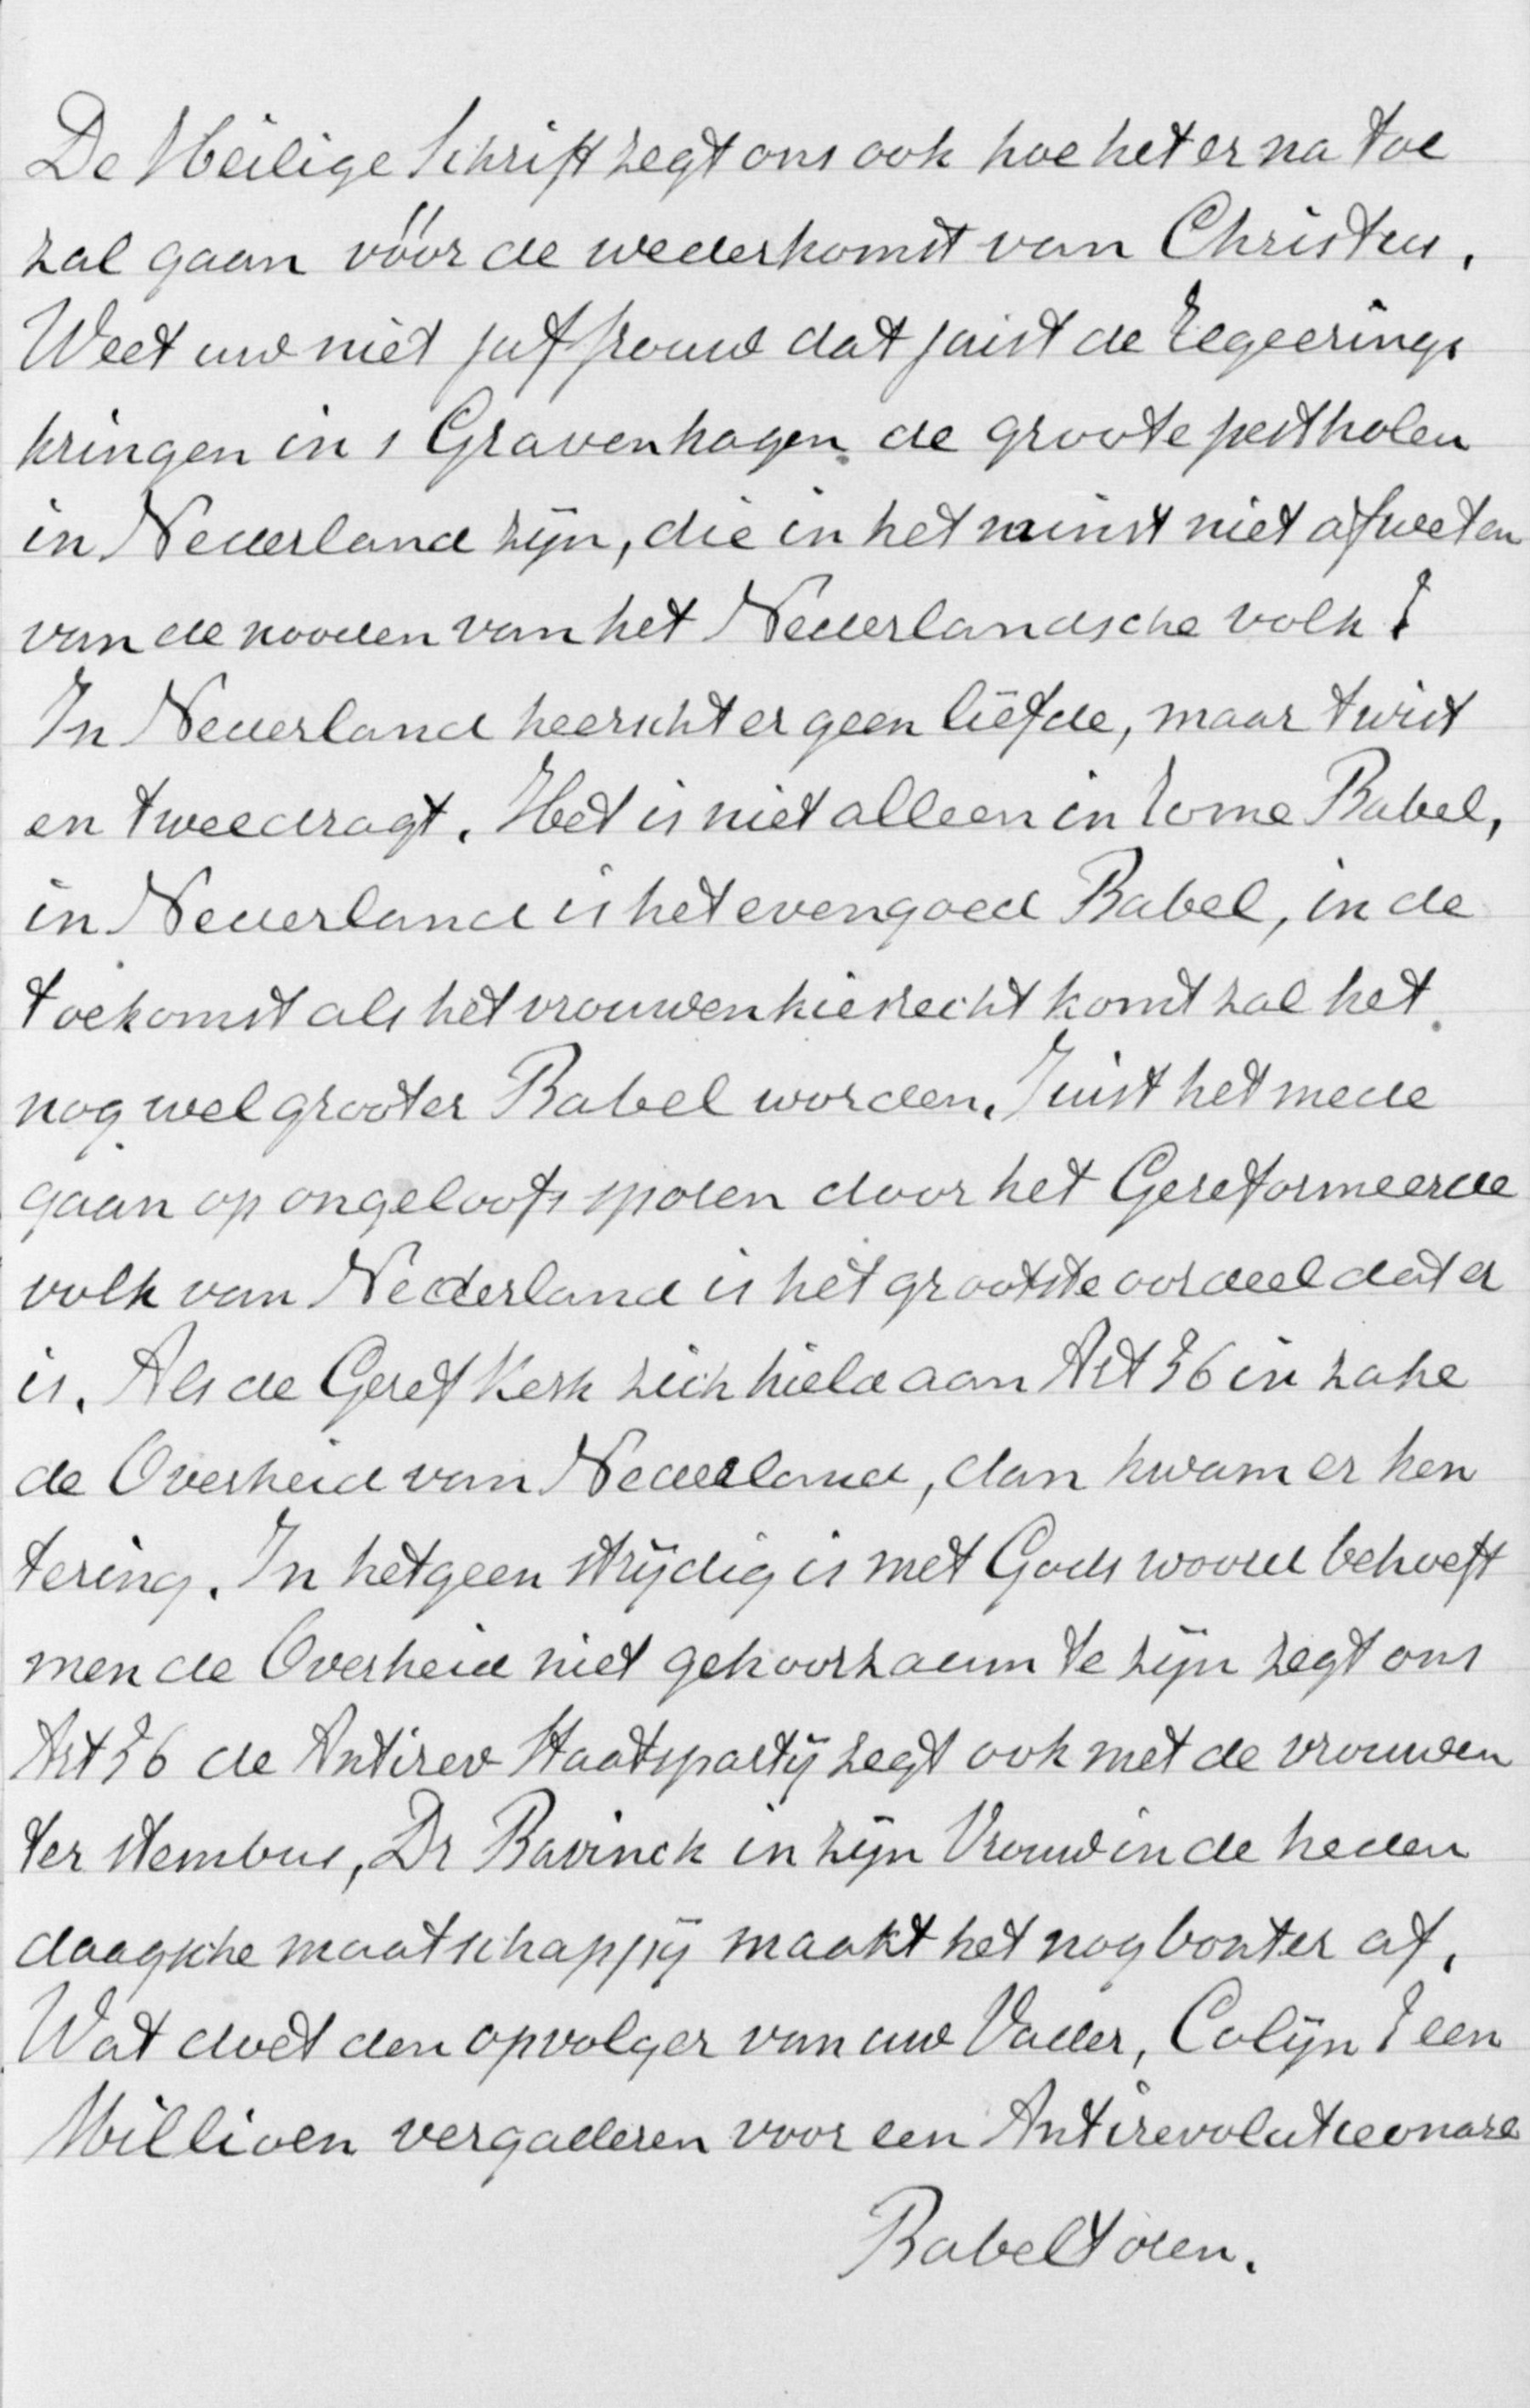 De Heilige Schrift zegt ons ook hoe het er na toe
zal gaan vóór de wederkomst van Christus.
Weet uw niet juffrouw dat juist de regeerings
kringen in s Gravenhagen de groote pestholen
in Nederland zijn, die in het minst niet afweten
van de nooden van het Nederlandsche volk?
In Nederland heerscht er geen liefde, maar twist
en tweedragt. Het is niet alleen in rome Babel,
in Nederland is het evengoed Babel, in de
toekomst als het vrouwenkiesrecht komt zal het
nog wel grooter Babel worden. Juist het mede
gaan op ongeloofs sporen door het Gereformeerde
volk van Nederland is het grootste oordeel dat er
is. Als de Geref Kerk zich hield aan Art 36 in zake
de Overheid van Nederland, dan kwam er ken
tering. In hetgeen strijdig is met Gods woord behoeft
men de Overheid niet gehoorzaam te zijn zegt ons
Art 36 de Antirev Staatspartij zegt ook met de vrouwen
ter stembus, Dr Bavinck in zijn Vrouw in de heden
daagsche maatschappij maakt het nog bonter af.
Wat doet den opvolger van uw Vader, Colijn? een
Millioen vergaderen voor een Antirevolutieonare
Babeltoren.